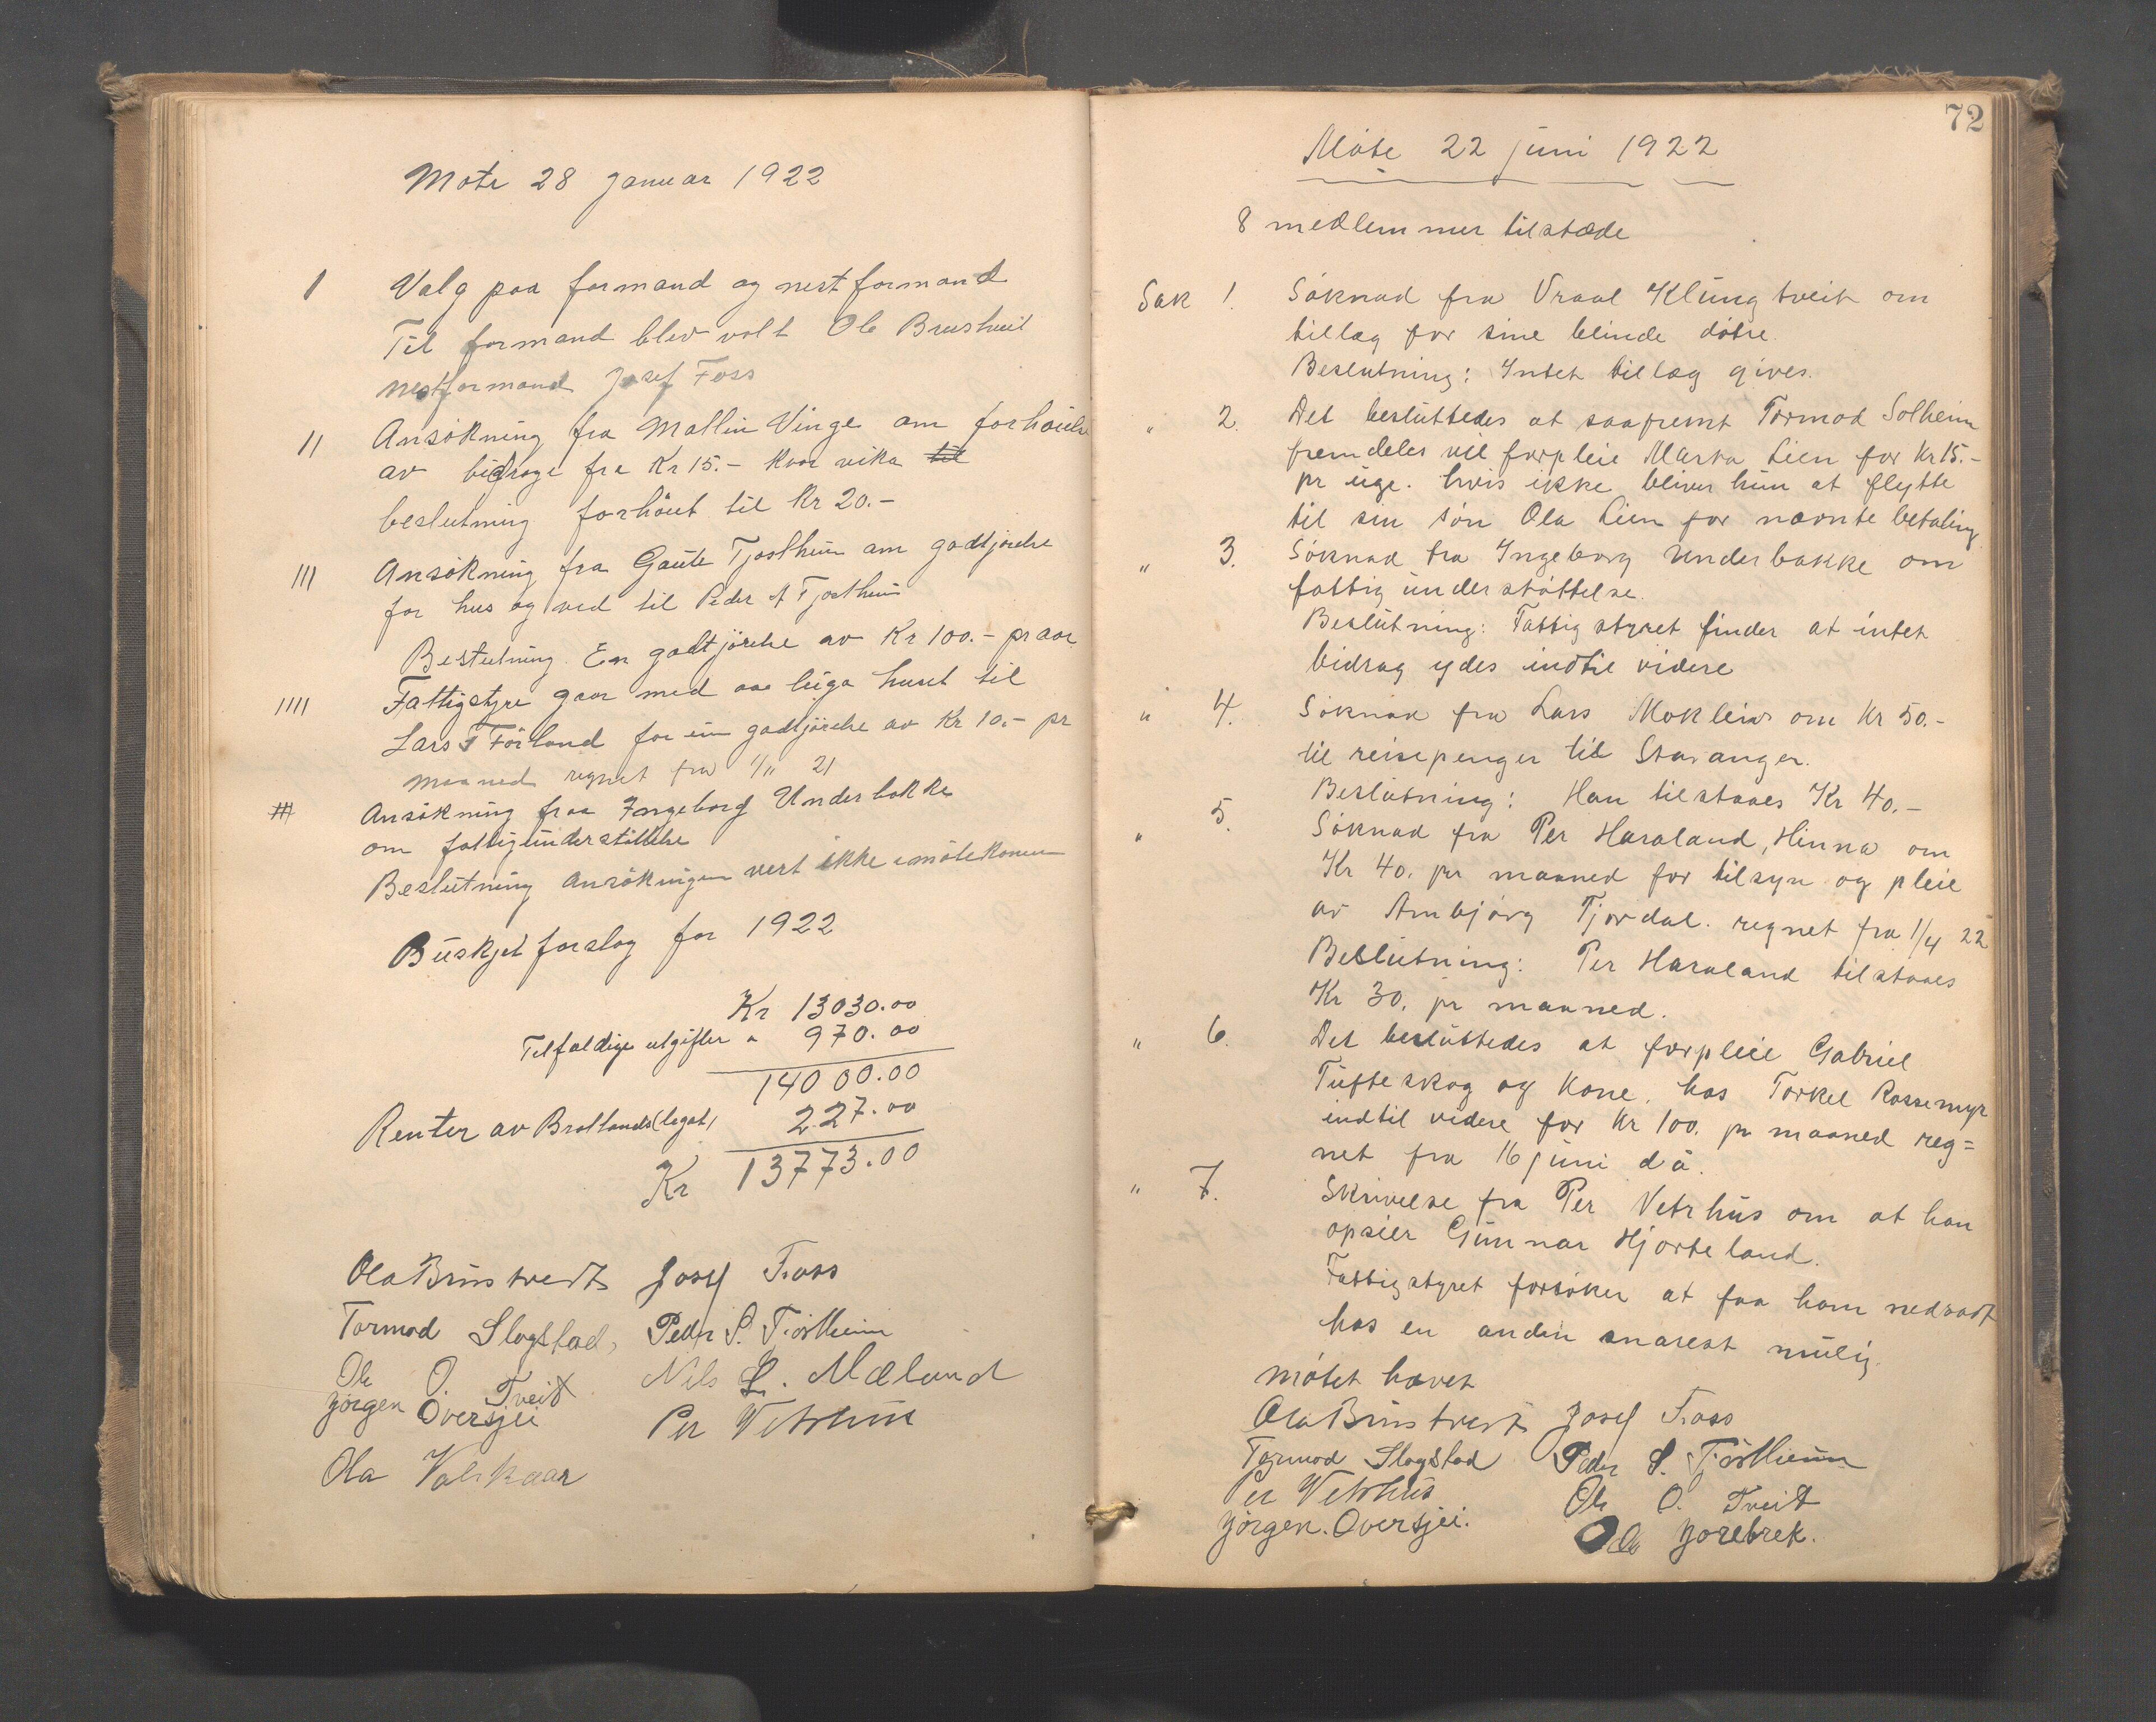 Møte 28 januar 1922
I Valg paa formand og nestformand
Til formand blev valt Ole Brustveit
nestformand Josef Foss
II Ansökning fra Mallin Vinge om forhöielse
av bidrage fra Kr 15.- kvar vika til
beslutning forhöiet til Kr 20.-
III Ansökning fra Gaute Tjostheim om godtjörelse
for hus og ved til Peder A Tjostheim
Beslutning. En godtjörelse av Kr 100.- pr aar
IIII Fattigstyre gaar med aa leiga huset til
Lars T Förland for ein godtjörelse av Kr 10.- pr
maaned regnet fra 1/11 21
Ansökning fraa Ingeborg Underbakke
om fattigunderstöttelse
Beslutning Ansökningen vert ikke imötekomen
Büskjet forslag for 1922
Kr 13030.00
Tilfældige utgifter " 970.00
14000.00
Renter av Bratlands (legat) 227.00
Kr 13773.00
Ola Brustveit Josef Foss
Tormod Slogstad, Peder S. Tjostheim
Ole O. Tveit Nils L. Mæland
Jörgen Oversjei Per Vetrhus
Ola Valskaar
72
Møte 22 juni 1922
8 medlemmer tilstæde
Sak 1. Søknad fra Vraal Klungtveit om
tillæg for sine blinde døtre.
Beslutning: Intet tillæg gives.
" 2. Det besluttedes at saafremt Tormod Solheim
fremdeles vil forpleie Marta Lien for Kr 15.-
pr uge. hvis ikke bliver hun at flytte
til sin søn Ola Lien for nævnte betaling
" 3. Søknad fra Ingeborg Underbakke om
fattigunderstøttelse.
Beslutning: Fattigstyret finder at intet
bidrag ydes indtil videre
" 4. Søknad fra Lars Mokleiv om Kr 50.-
til reisepenger til Stavanger.
Beslutning: Han tilstaaes Kr 40.-
" 5. Søknad fra Per Haraland, Hinna om
Kr 40. pr maaned for tilsyn og pleie
av Ambjørg Fjordal. regnet fra 1/4 22
Beslutning: Per Haraland tilstaaes
Kr 30. pr maaned.
" 6. Det besluttedes at forpleie Gabriel
Tufteskog og kone. hos Torkel Rossemyr
indtil videre for Kr 100. pr maaned reg=
net fra 16 juni d å.
" 7. Skrivelse fra Per Vetrhus om at han
opsier Gunnar Hjorteland.
Fattigstyret forsøker at faa ham nedsadt
hos en anden snarest mulig.
møtet hævet
Ola Brustveit Josef Foss
Tormod Slogstad Peder S. Tjostheim
Per Vetrhus Ole O. Tveit
Jörgen. Oversjei. Ola Jorebrek.